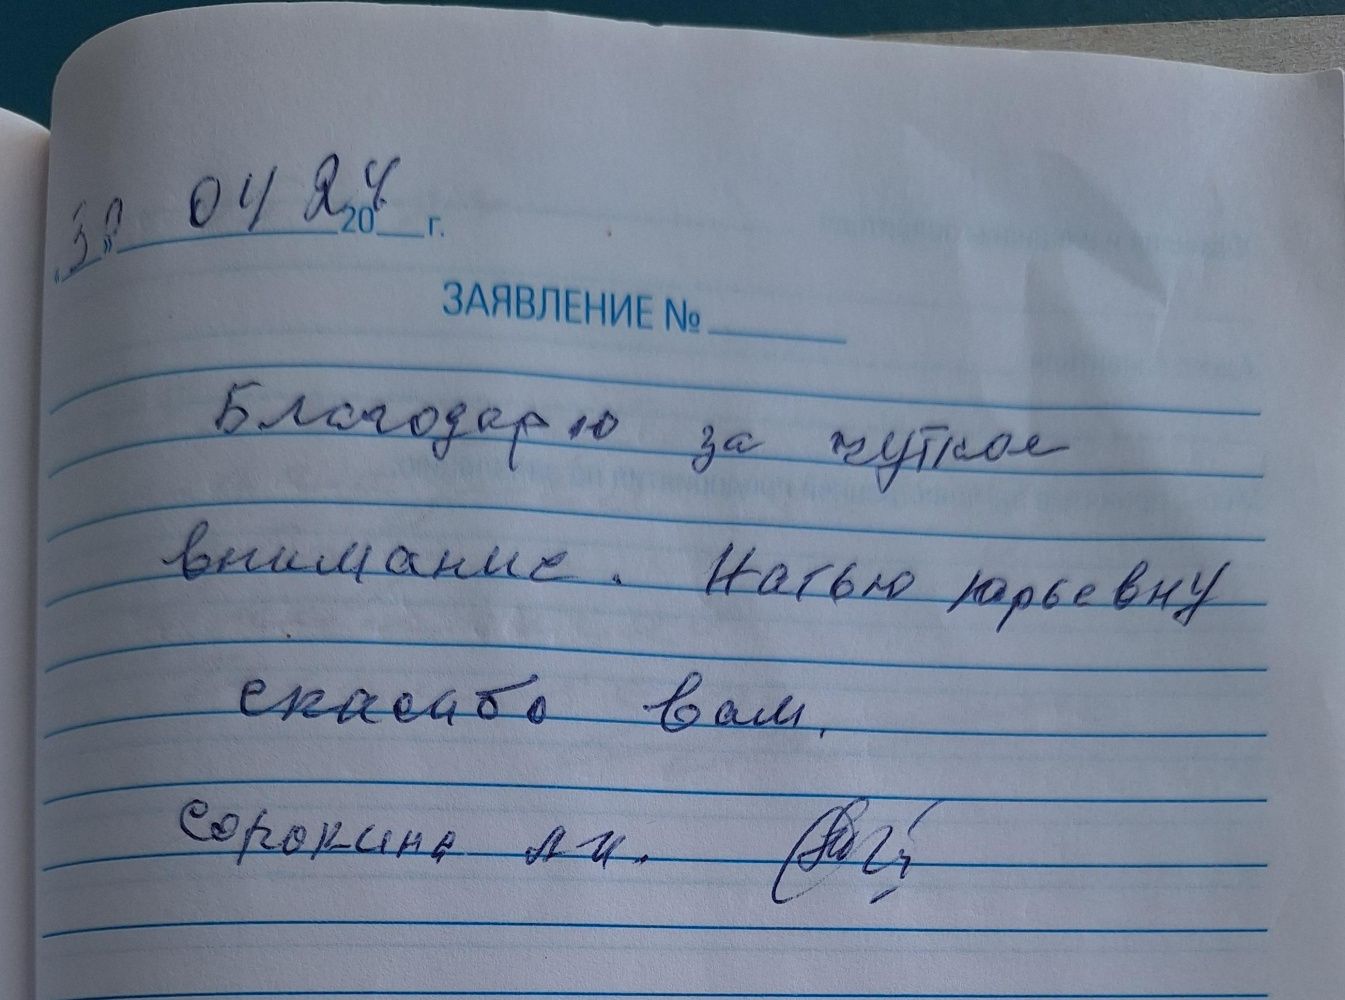 «30» 04 24 20__ г.
ЗАЯВЛЕНИЕ № ______
Благодарю за чуткое
внимание. Натью Юрьевну
спасибо вам.
Сорокина Л И.